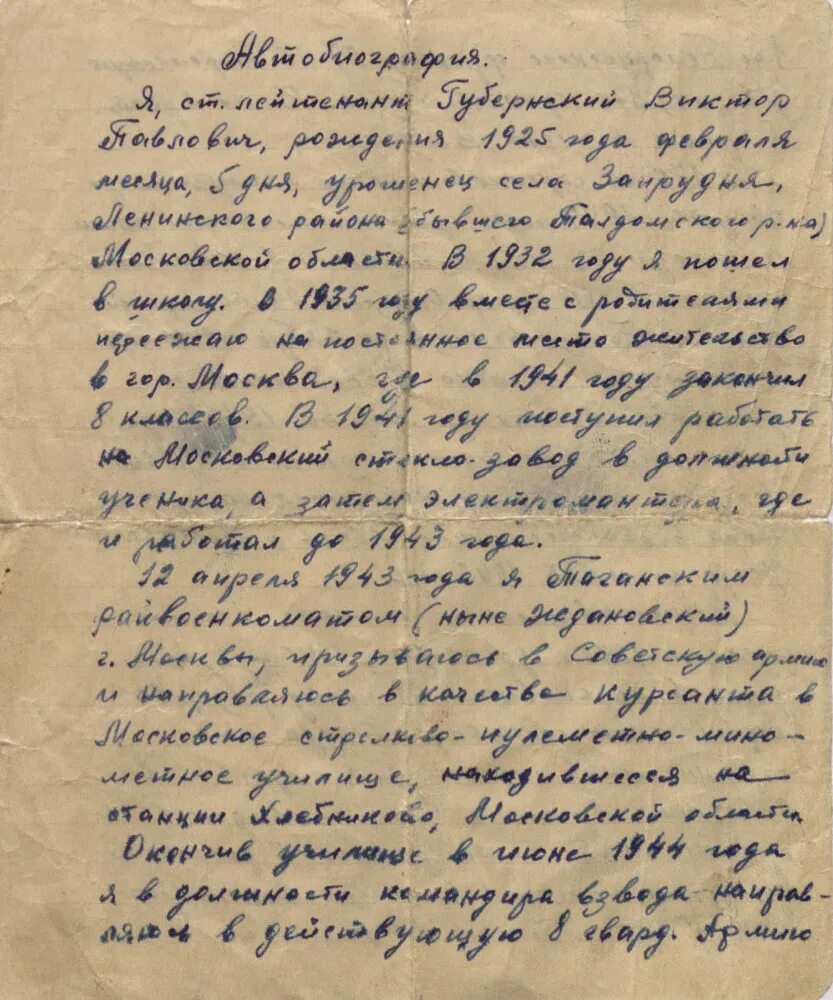 Автобиография.
Я, ст. лейтенант Губернский Виктор
Павлович, рождения 1925 года февраля
месяца, 5 дня, уроженец села Запрудня,
Ленинского района (бывшего Талдомского р-на)
Московской области. В 1932 году я пошел
в школу. В 1935 году вместе с родителями
переезжаю на постоянное место жительство
в гор. Москва, где в 1941 году закончил
8 классов. В 1941 году поступил работать
на Московский стекло-завод в должности
ученика, а затем электромантера, где
и работал до 1943 года.
12 апреля 1943 года я Таганским
райвоенкоматом (ныне Ждановский)
г. Москвы, призываюсь в Советскую армию
и направляюсь в качестве курсанта в
Московское стрелково-пулеметно-мино-
метное училище, находившееся на
станции Хлебниково, Московской области.
Окончив училище в июне 1944 года
я в должности командира взвода направ-
ляюсь в действующую 8 гвард. Армию